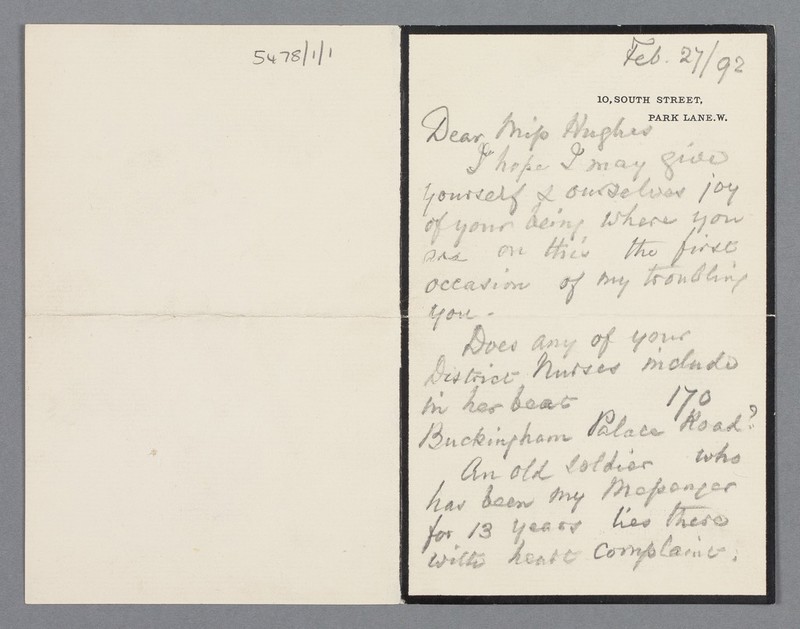 5478/1/1
Feb. 27/92
10, SOUTH STREET,
PARK LANE. W.
Dear Miss Hughes
I hope I may give
yourself & ourselves joy
of your being where you
are on this the first
occasion of my troubling
you -
Does any of your
District Nurses include
in her beat 170
Buckingham Palace Road?
An old Soldier who
has been my Messenger
for 13 years lies there
with heart complaint.